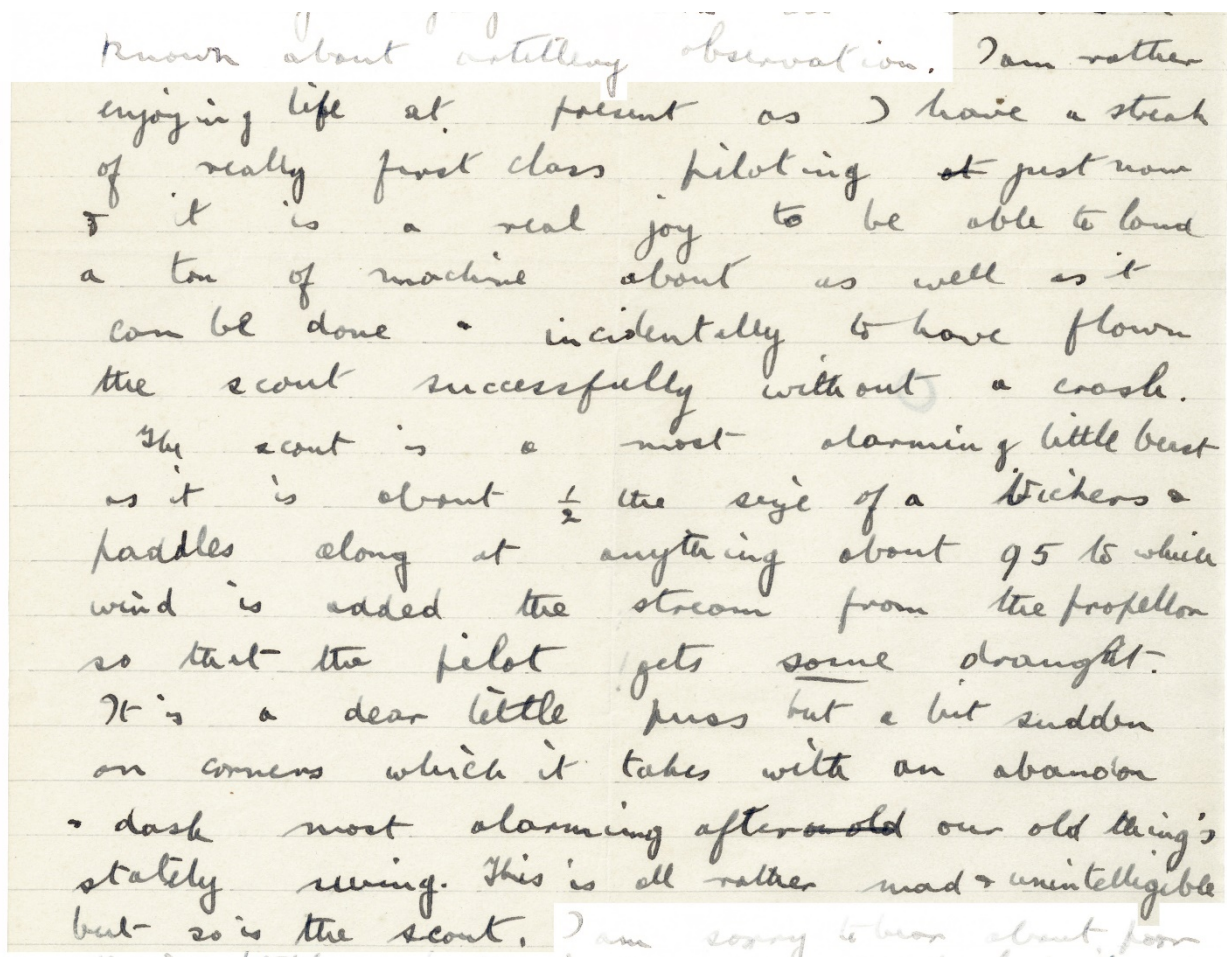 known about artillery observation. I am rather
enjoying life at present as I have a streak
of really first class piloting at just now
& it is a real joy to be able to land
a ton of machine about as well as it
can be done & incidentally to have flown
the scout successfully without a crash.
The scout is a most alarming little beast
as it is about ½ the size of a Vickers &
paddles along at anything about 95 to which
wind is added the stream from the propellor
so that the pilot gets some draught.
It is a dear little puss but a bit sudden
on corners which it takes with an abandon
& dash most alarming after an old our old thing's
stately swing. This is all rather mad & unintelligible
but so is the scout. I am sorry to hear about poor